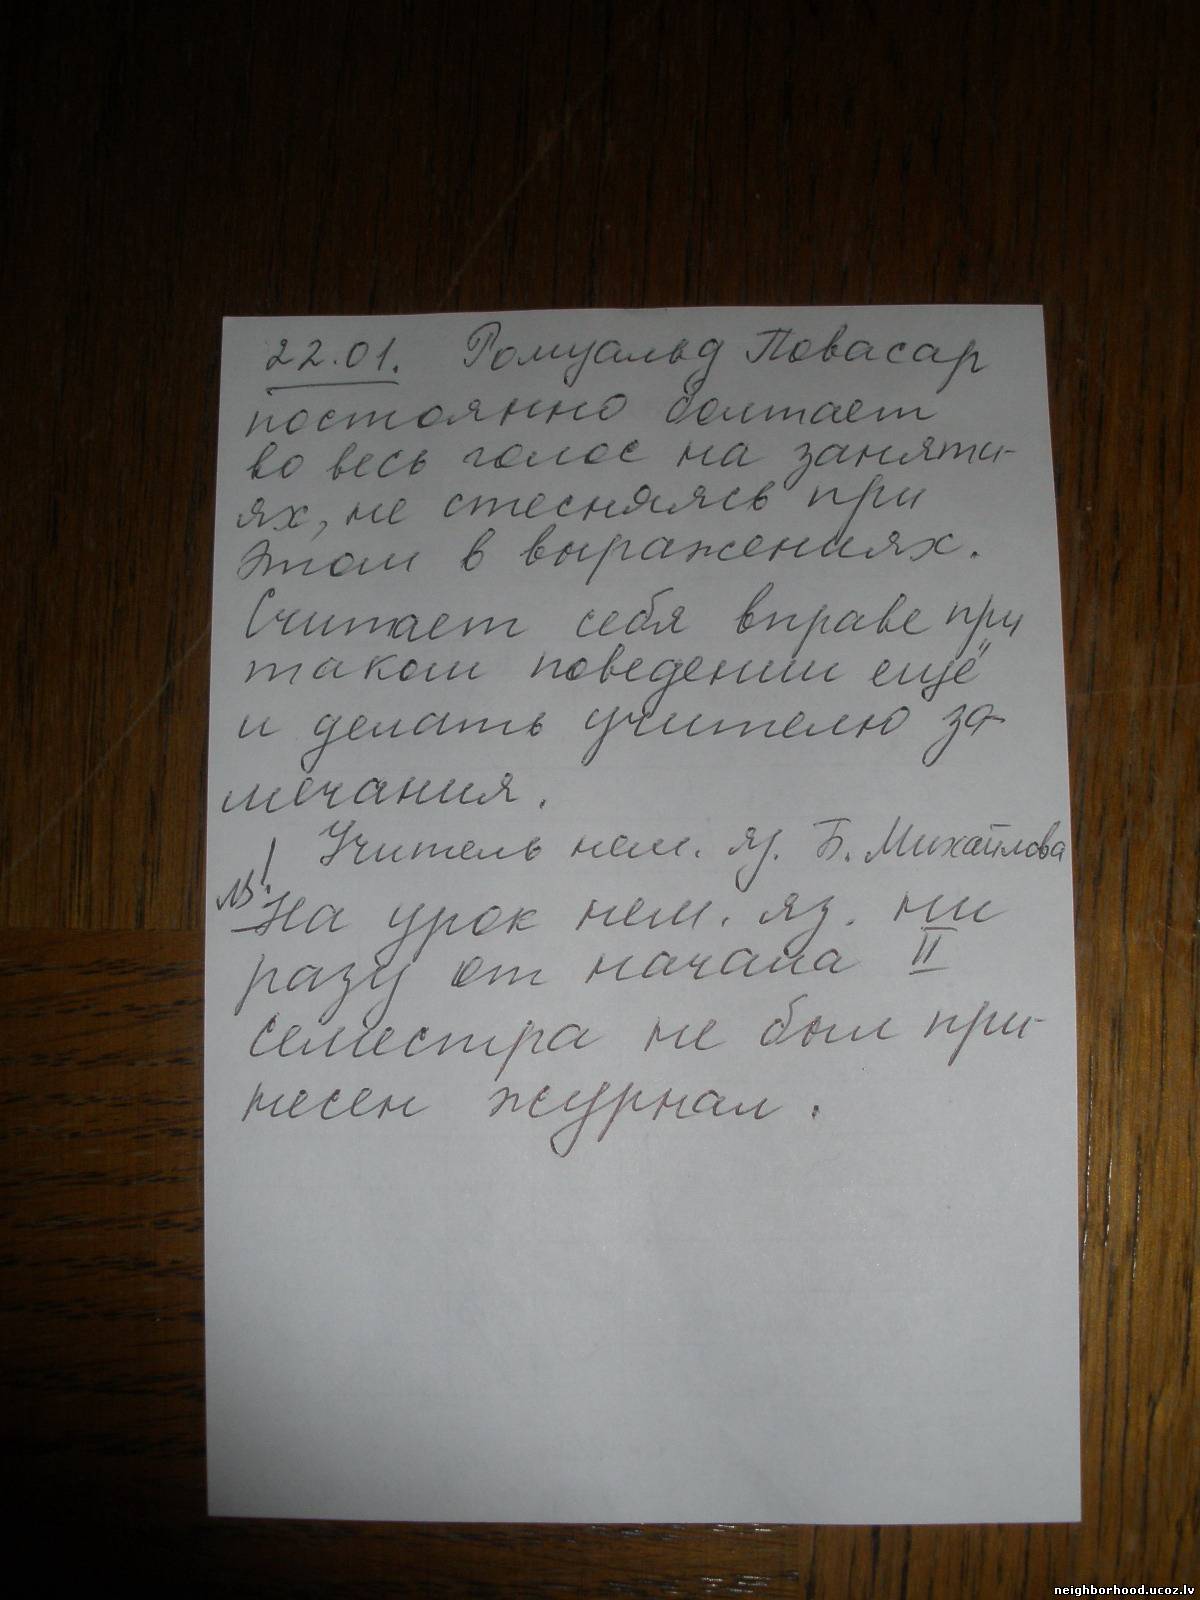 22.01. Ромуальд Повасар
постоянно болтает
во весь голос на заняти-
ях, не стесняясь при
этом в выражениях.
Считает себя вправе при
таком поведении ещё
и делать учителю за-
мечания.
Учитель нем. яз. Б. Михайлова
NB!
На урок нем. яз. ни
разу от начала II
семестра не был при-
несен журнал.
neighborhood.ucoz.lv